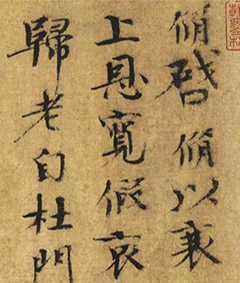 脩啓脩以衰
上恩寬假哀
歸老自杜門